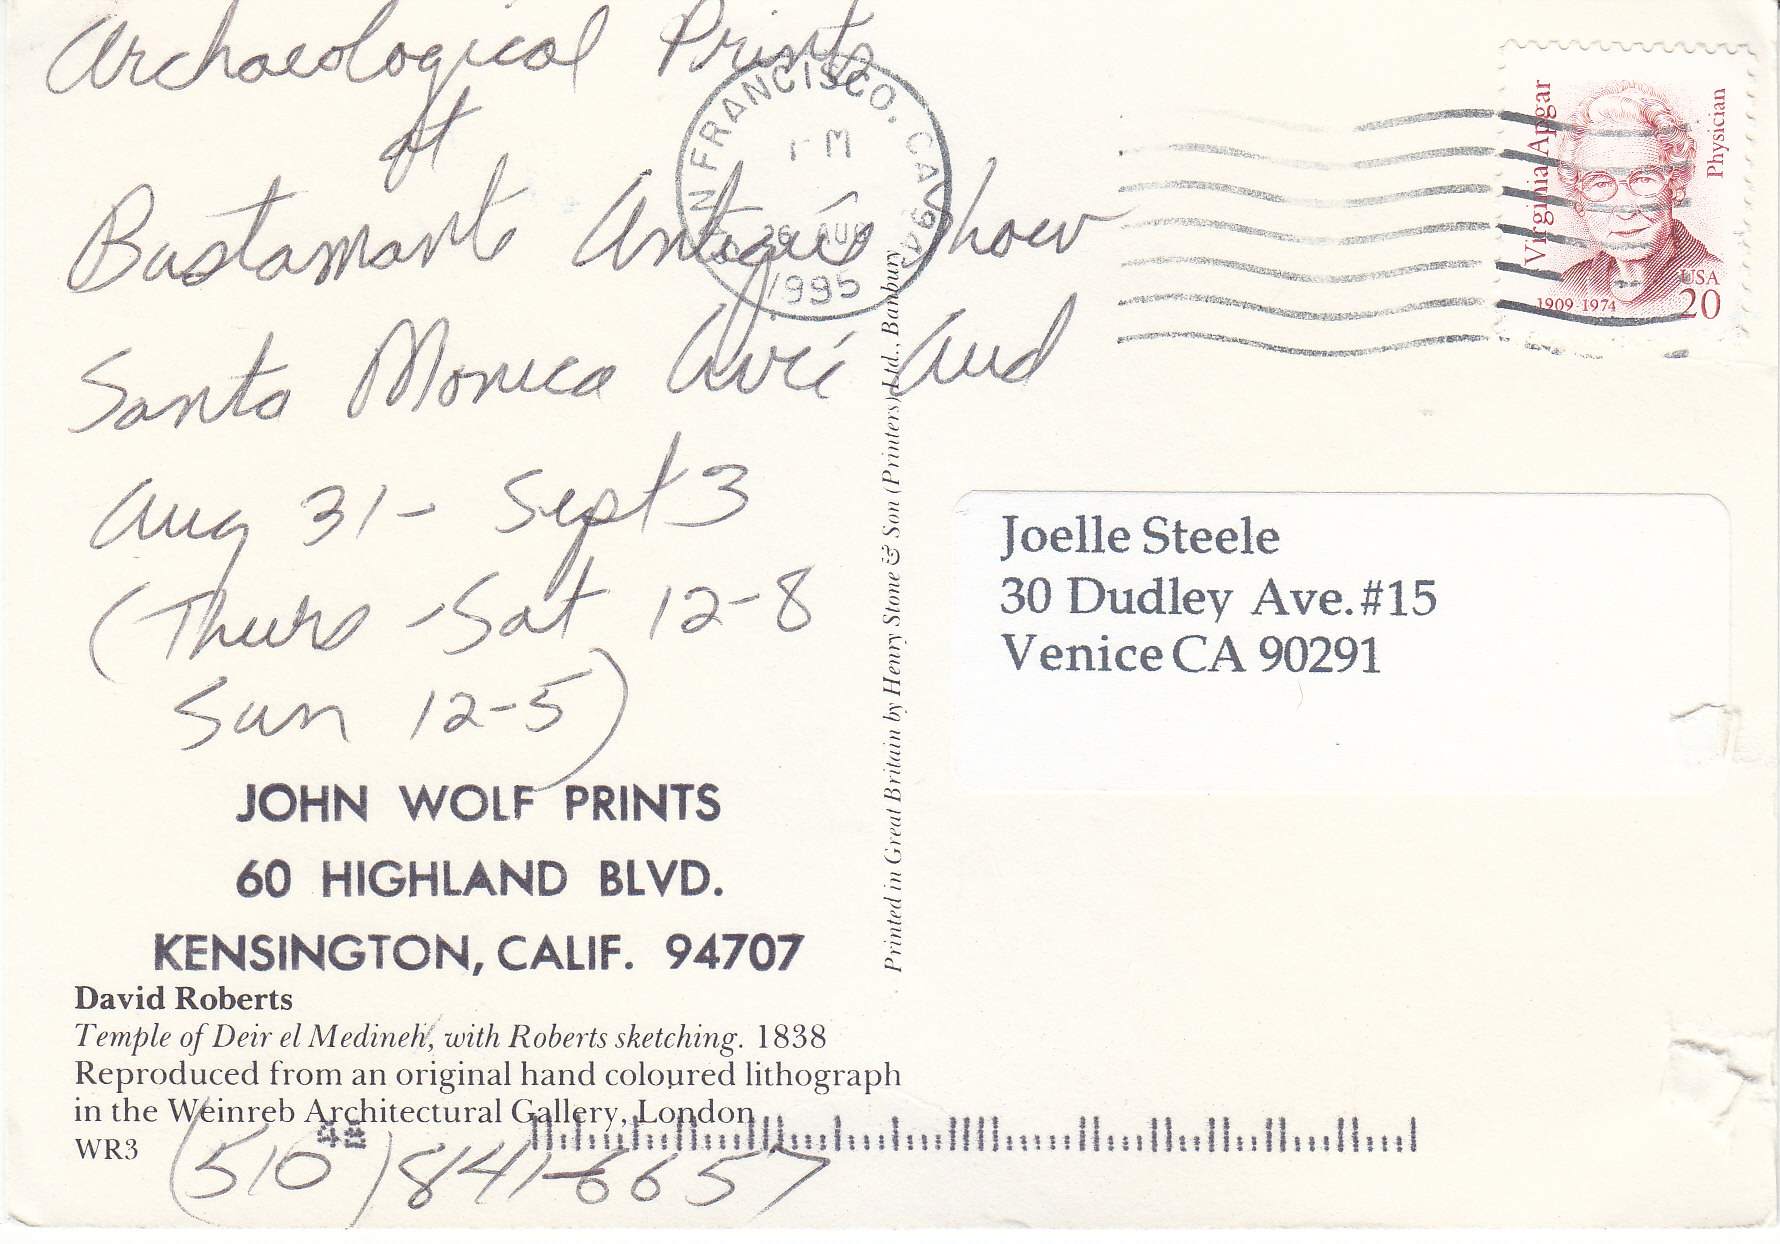 Archaeological Prints
at
Bustamante Antiques Show
Santa Monica Civic Aud
Aug 31 - Sept 3
(Thurs - Sat 12-8
Sun 12-5)
JOHN WOLF PRINTS
60 HIGHLAND BLVD.
KENSINGTON, CALIF. 94707
David Roberts
Temple of Deir el Medineh, with Roberts sketching. 1838
Reproduced from an original hand coloured lithograph
in the Weinreb Architectural Gallery, London
WR3
(510) 841-6657
Printed in Great Britain by Henry Stone & Son (Printers) Ltd., Banbury
SAN FRANCISCO, CA
PM
26 AUG
1995
Virginia Apgar
Physician
1909-1974
USA
20
Joelle Steele
30 Dudley Ave. #15
Venice CA 90291